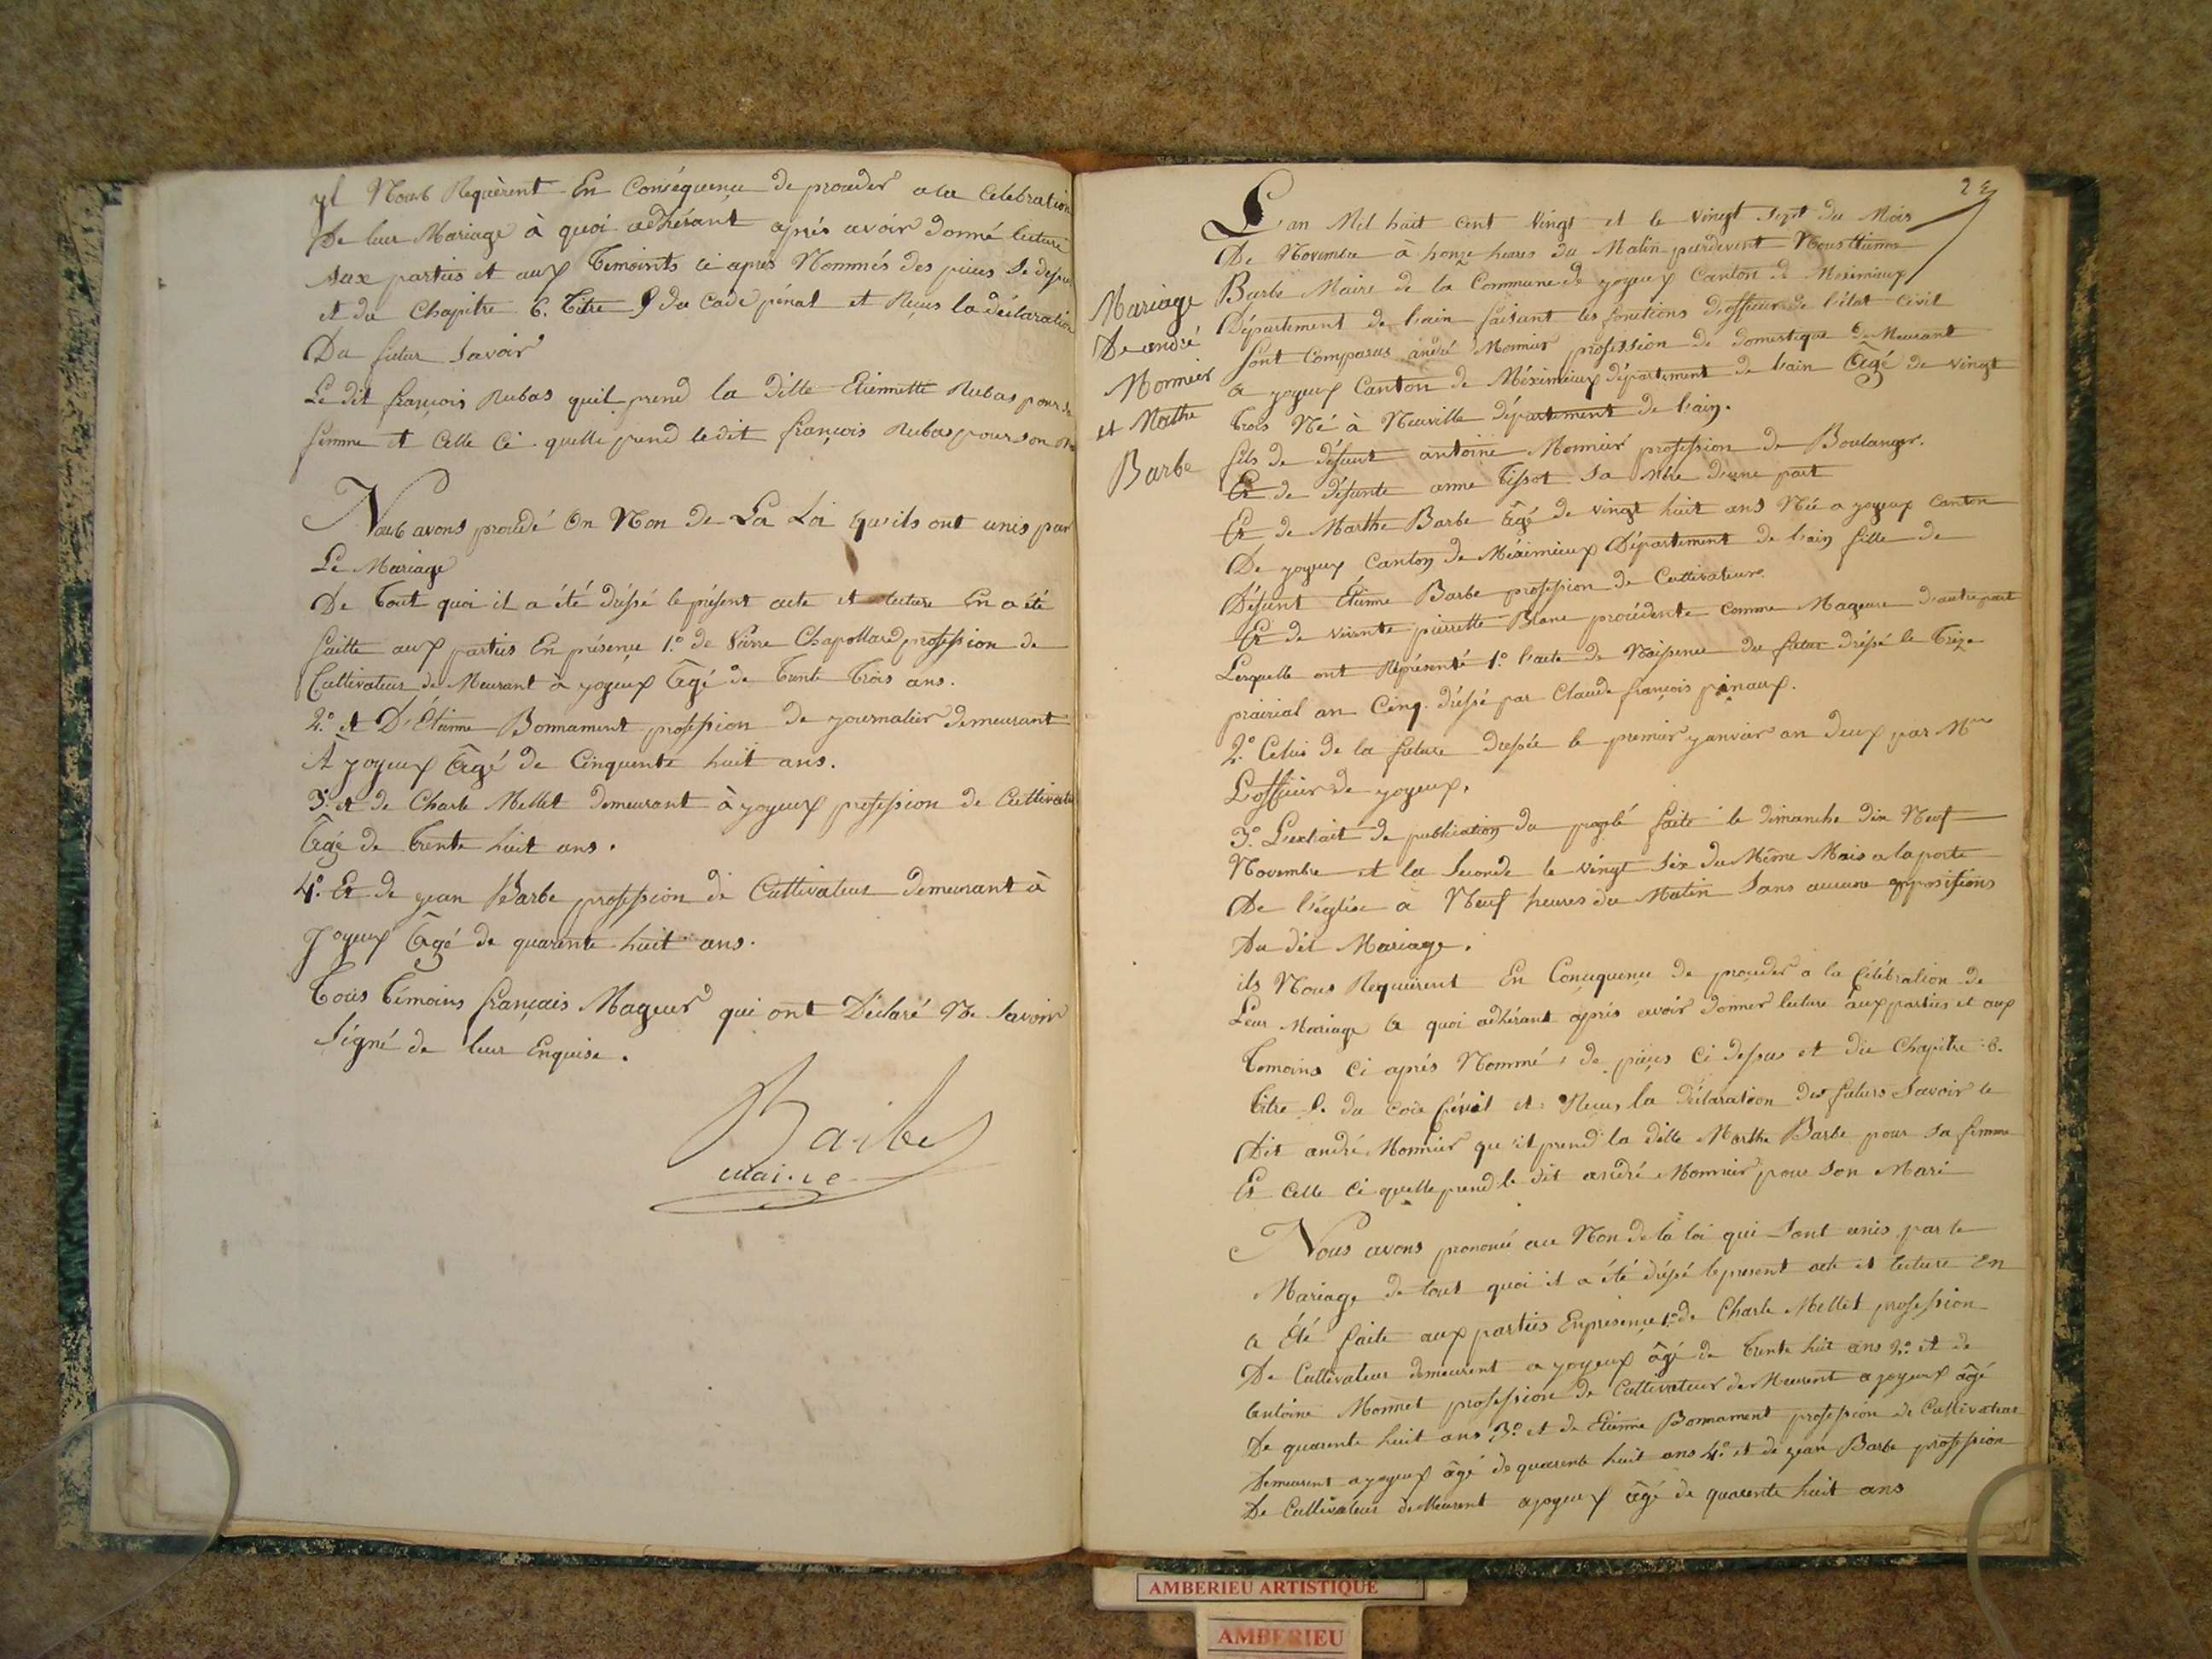 yl Nous Requèrent En Conséquence de proceder a la Celebration
De leur Mariage à quoi adhérant après avoir donné lecture
aux parties et aux Temoints ci apres Nommés des pièces Si dessus
et du Chapitre 6. Titre 5 du Code pénal et Reçus la déclaration
Du futur Savoir
Le dit françois Rubas quil prend la ditte Etiennette Rubas pour Sa
femme et Celle Ci quelle prend ledit françois Rubas pour son
Nous avons procedé On Non De La Loi qu'ils ont unis par
Le Mariage
De Tout quoi il a été dressé le présent acte et lecture En a été
faitte aux parties En présence 1.° de Pierre Chapollard profession de
Cultivateur de Meurant à yoyeux Âgé de Trente Trois ans.
2.° et D'Étienne Bonnament profession de journalier demeurant
À yoyeux Âgé de Cinquente huit ans.
3.° et de Charle Mellet demeurant à yoyeux profession de Cultivateur
Âgé de Trente huit ans.
4.° Et de jean Barbe profession de Cultivateur demeurant à
Joyeux Âgé de quarente huit ans.
Tous Témoins français Mageur qui ont Déclaré Ne Savoir
Signé de leur Enquise.
Barbe
maire
L'an Mil huit Cent Vingt et le vingt Sept du Mois
De Novembre à honze heures du Matin pardevent Nous Etienne
Barbe Maire de la Commune de yoyeux Canton de Meximieux
Département de l'ain faisant les fonctions d'officier de l'état Civil
Sont Comparus andré Monnier profession de domestique de Meurant
a yoyeux Canton de Méximieux département de l'ain Âgé de vingt
Trois Né à Neuville département de l'ain.
fils de défunt antoine Monnier profession de Boulanger.
Et de défunte anne Tissot Sa Mère d'une part
Et de Marthe Barbe Âgé de vingt huit ans Née a yoyeux Canton
De yoyeux Canton de Méximieux Département de l'ain fille de
Défunt Étienne Barbe profession de Cultivateur
Et de vivente pierrette Blanc procédente Comme Mageure d'autre part
Lesquelle ont Représenté 1.° l'acte de Naissence du futur dréssé le Trèze
prairial an Cinq dréssé par Claude françois pinaux.
2.° Celui de la future Dressée le premier janvier an deux par Mr
L'officier de yoyeux,
3.° L'extrait de publication du faite le dimanche dix Neuf
Novembre et la Seconde le vingt Six du Même Mois a la porte
De l'église a Neuf heures du Matin Sans aucune oppositions
Du dit Mariage.
ils Nous Requièrent En Concequence de proceder a la Célébration de
Leur Mariage a quoi adhérant aprés avoir donner lecture aux parties et aux
Temoins Ci aprés Nommé, de pièces Ci dessus et du Chapitre 6.
titre 5. du Code et Reçus la déclaration des futurs Savoir le
Dit andré Monnier qu'il prend la ditte Marthe Barbe pour Sa femme
Et Celle Ci quelle prend le dit andré Monnier pour Son Mari
Nous avons prononcé au Non de la loi qui Sont unis par le
Mariage de tout quoi il a été dréssé le present acte et lecture En
a Été faite aux parties En présence 1.° de Charle Mellet profession
De Cultivateur demeurent a yoyeux âgé de Trente huit ans 2.° et de
Antoine Monnet profession de Cultivateur de Meurent a yoyeux âgé
De quarente huit ans 3.° et de Etienne Bonnament profession de Cultivateur
Demeurent a yoyeux âgé de quarente huit ans 4.° et de jean Barbe profession
De Cultivateur de Meurent a joyeux âgé de quarente huit ans
Mariage
De andré
Monnier
et Mathe
Barbe
AMBERIEU ARTISTIQUE
AMBERIEU